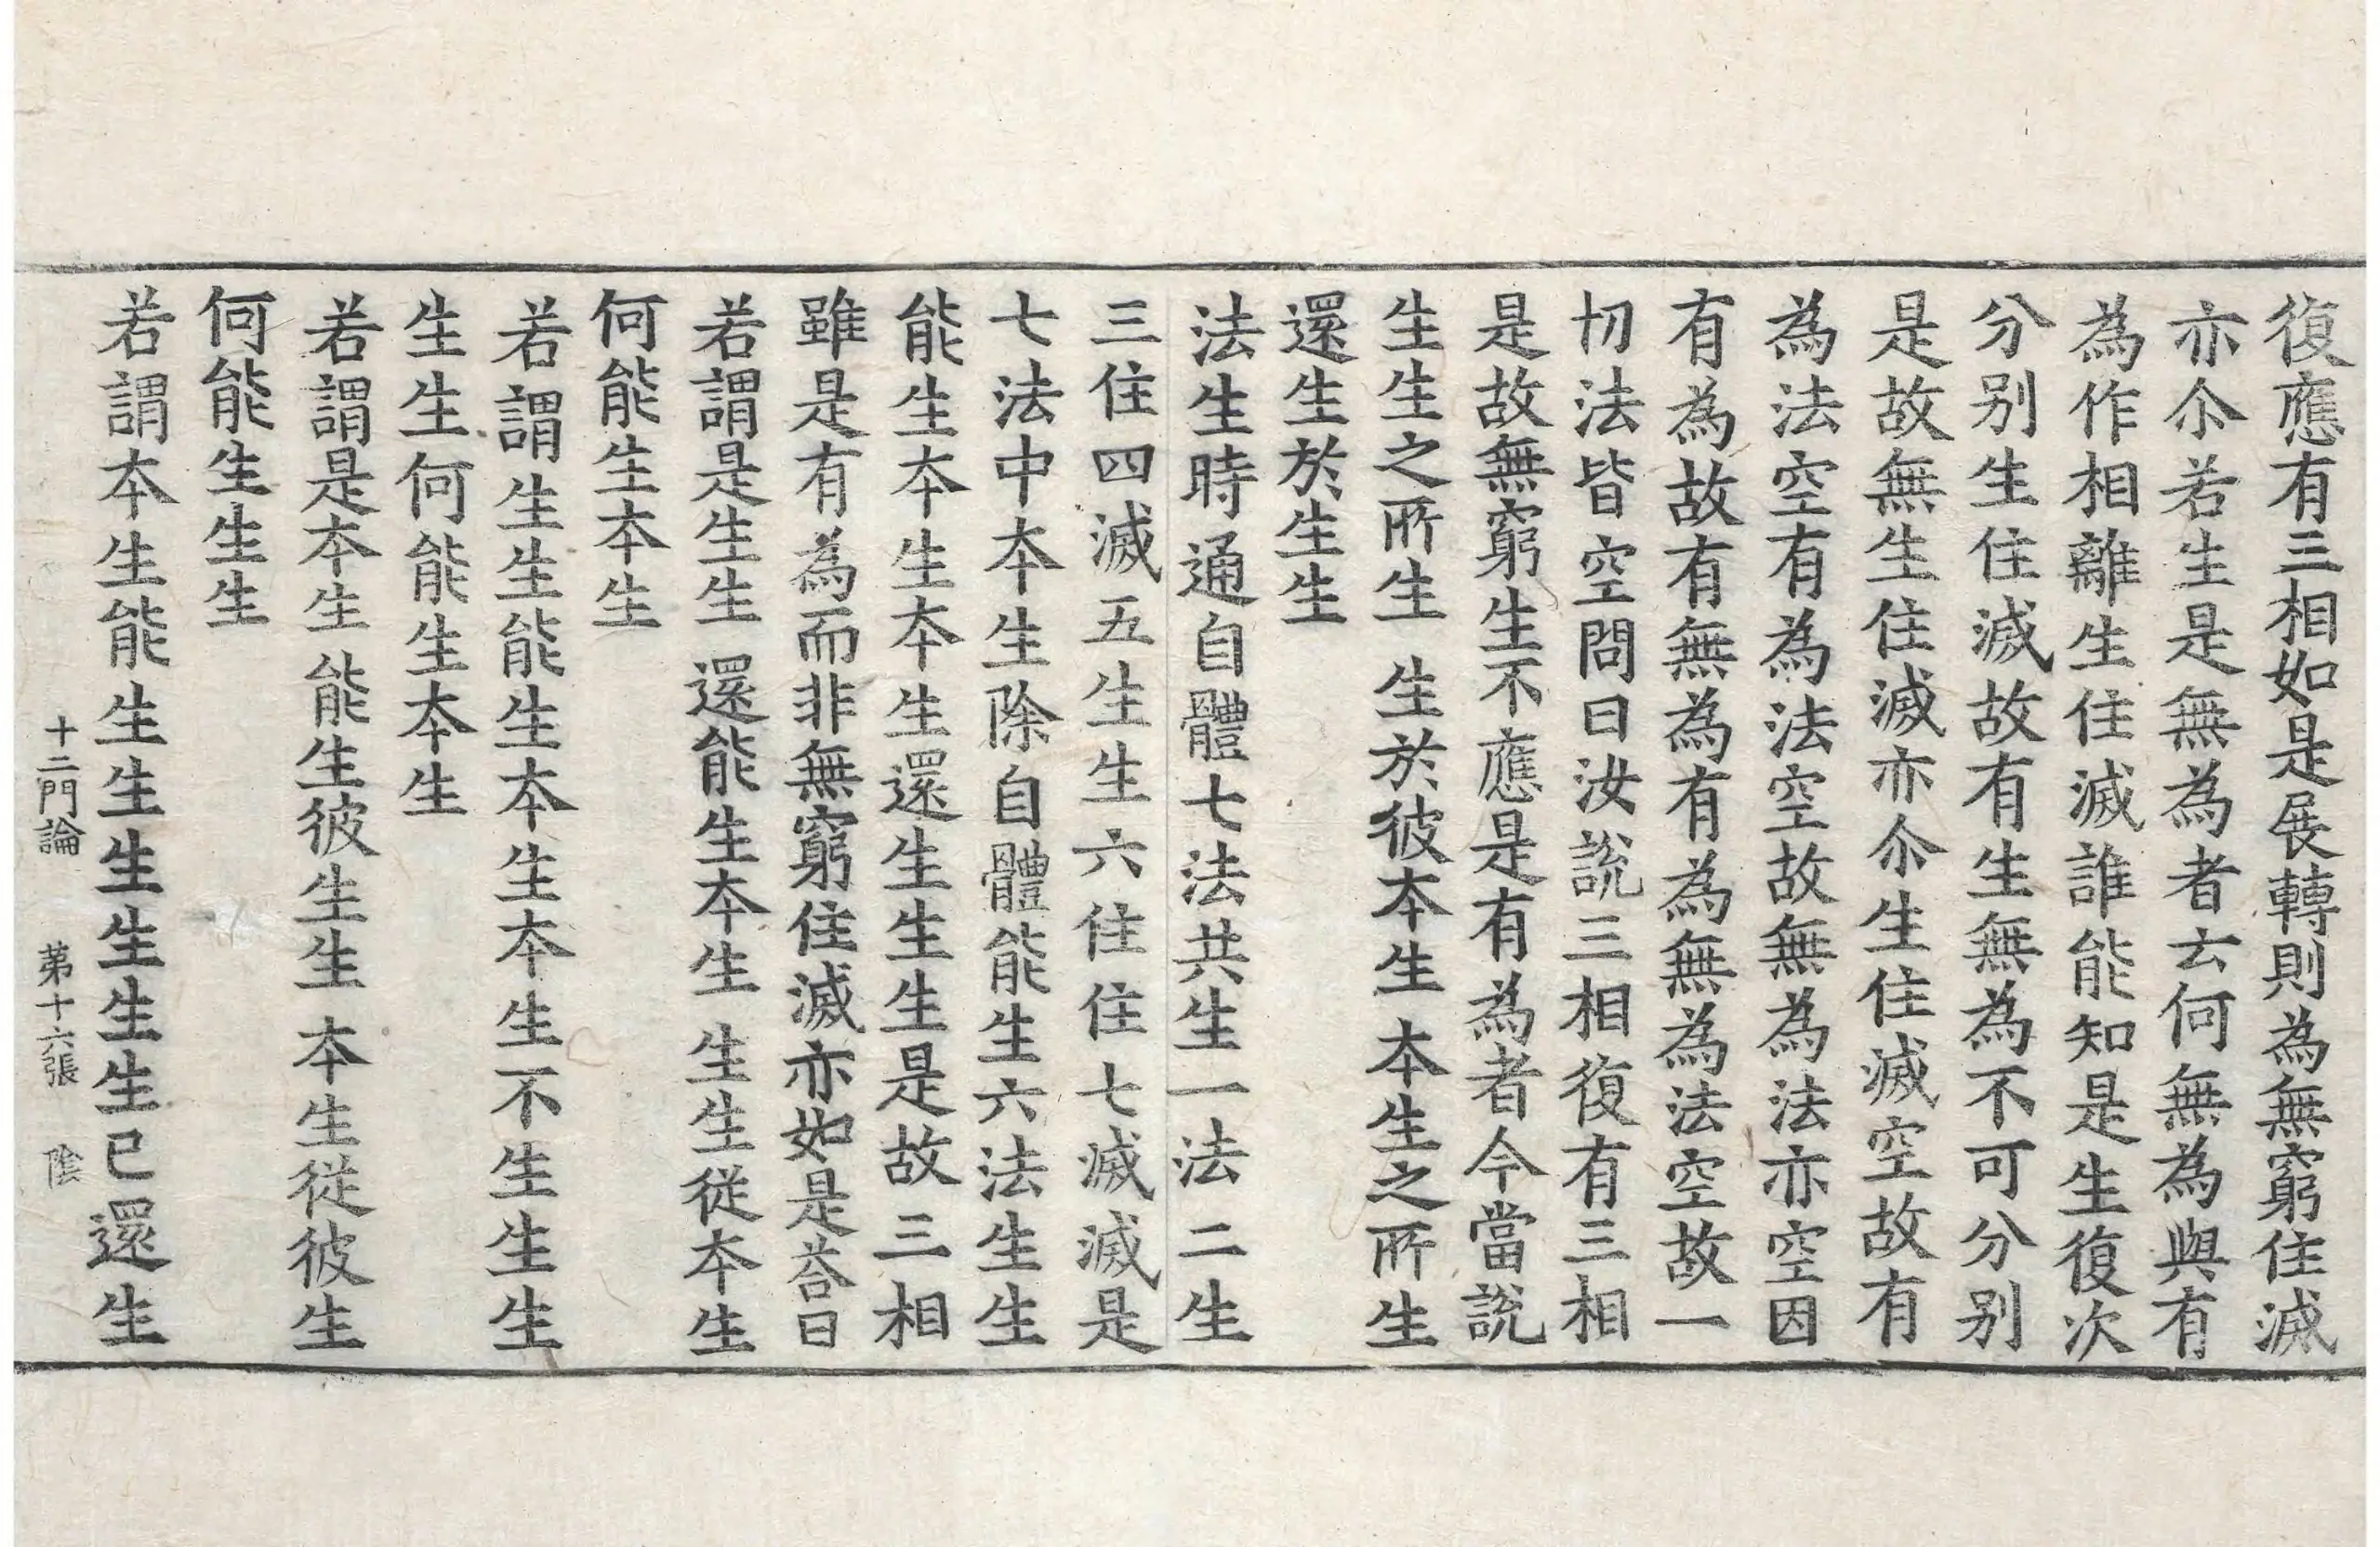 復應有三相如是展轉則為無窮住滅
亦尒若生是無為者云何無為與有
為作相離生住滅誰能知是生復次
分別生住滅故有生無為不可分別
是故無生住滅亦尒生住滅空故有
為法空有為法空故無為法亦空因
有為故有無為有為無為法空故一
切法皆空問曰汝說三相復有三相
是故無窮生不應是有為者今當說
生生之所生 生於彼本生 本生之所生
還生於生生
法生時通自體七法共生一法二生
三住四滅五生生六住住七滅滅是
七法中本生除自體能生六法生生
能生本生本生還生生生是故三相
雖是有為而非無窮住滅亦如是荅曰
若謂是生生 還能生本生 生生從本生
何能生本生
若謂生生能生本生本生不生生生
生生何能生本生
若謂是本生 能生彼生生 本生從彼生
何能生生生
若謂本生能生生生生生生已還生
十二門論 苐十六張 隂